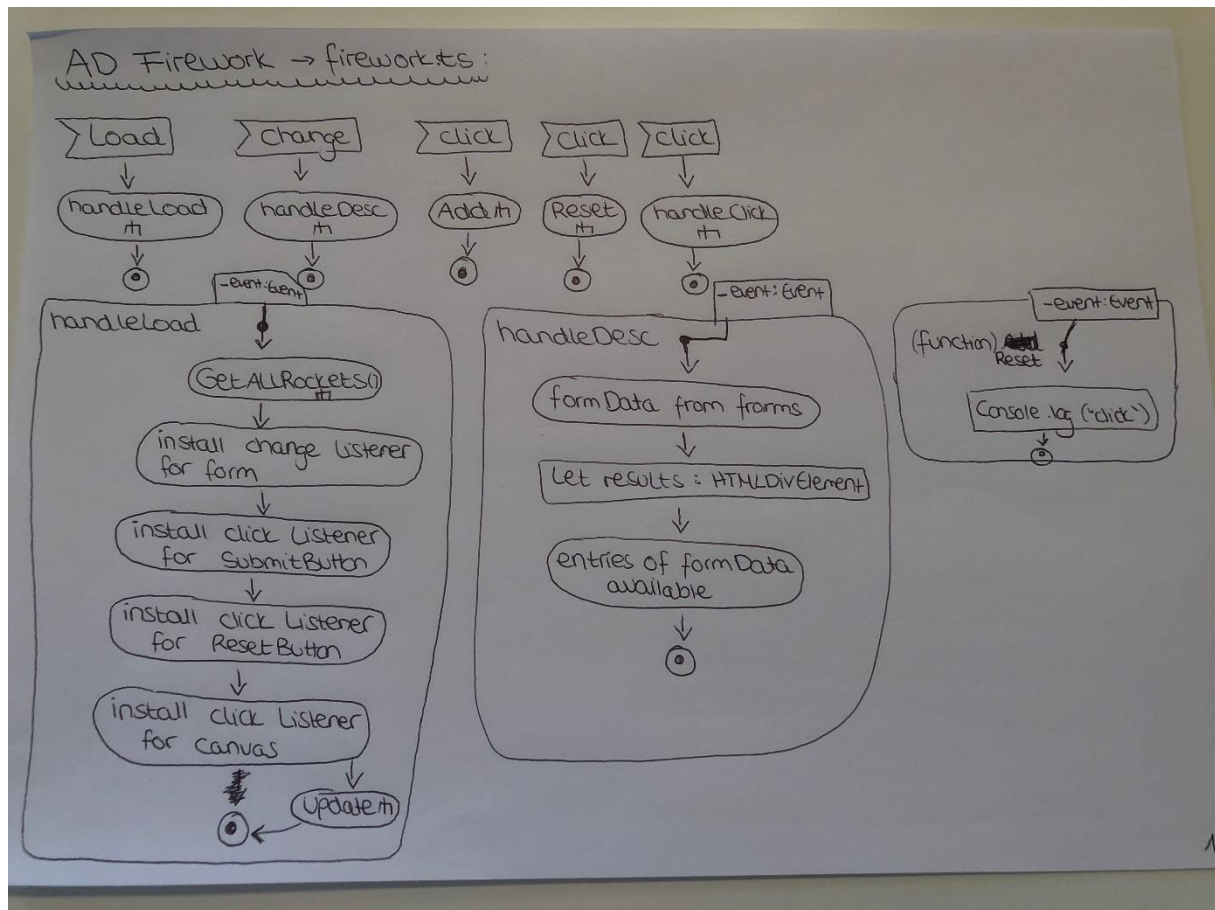 AD Firework → firework.ts:
Load
change
click
click
click
handleLoad
handleDesc
Add
Reset
handleClick
_event:Event
handleLoad
GetALLRockets()
install change Listener
for form
install click Listener
for SubmitButton
install click Listener
for ResetButton
install click Listener
for canvas
update
_event:Event
handleDesc
formData from froms
Let results : HTMLDivElement
entries of formData
available
_event:Event
(function)
Reset
Console.log ("click")